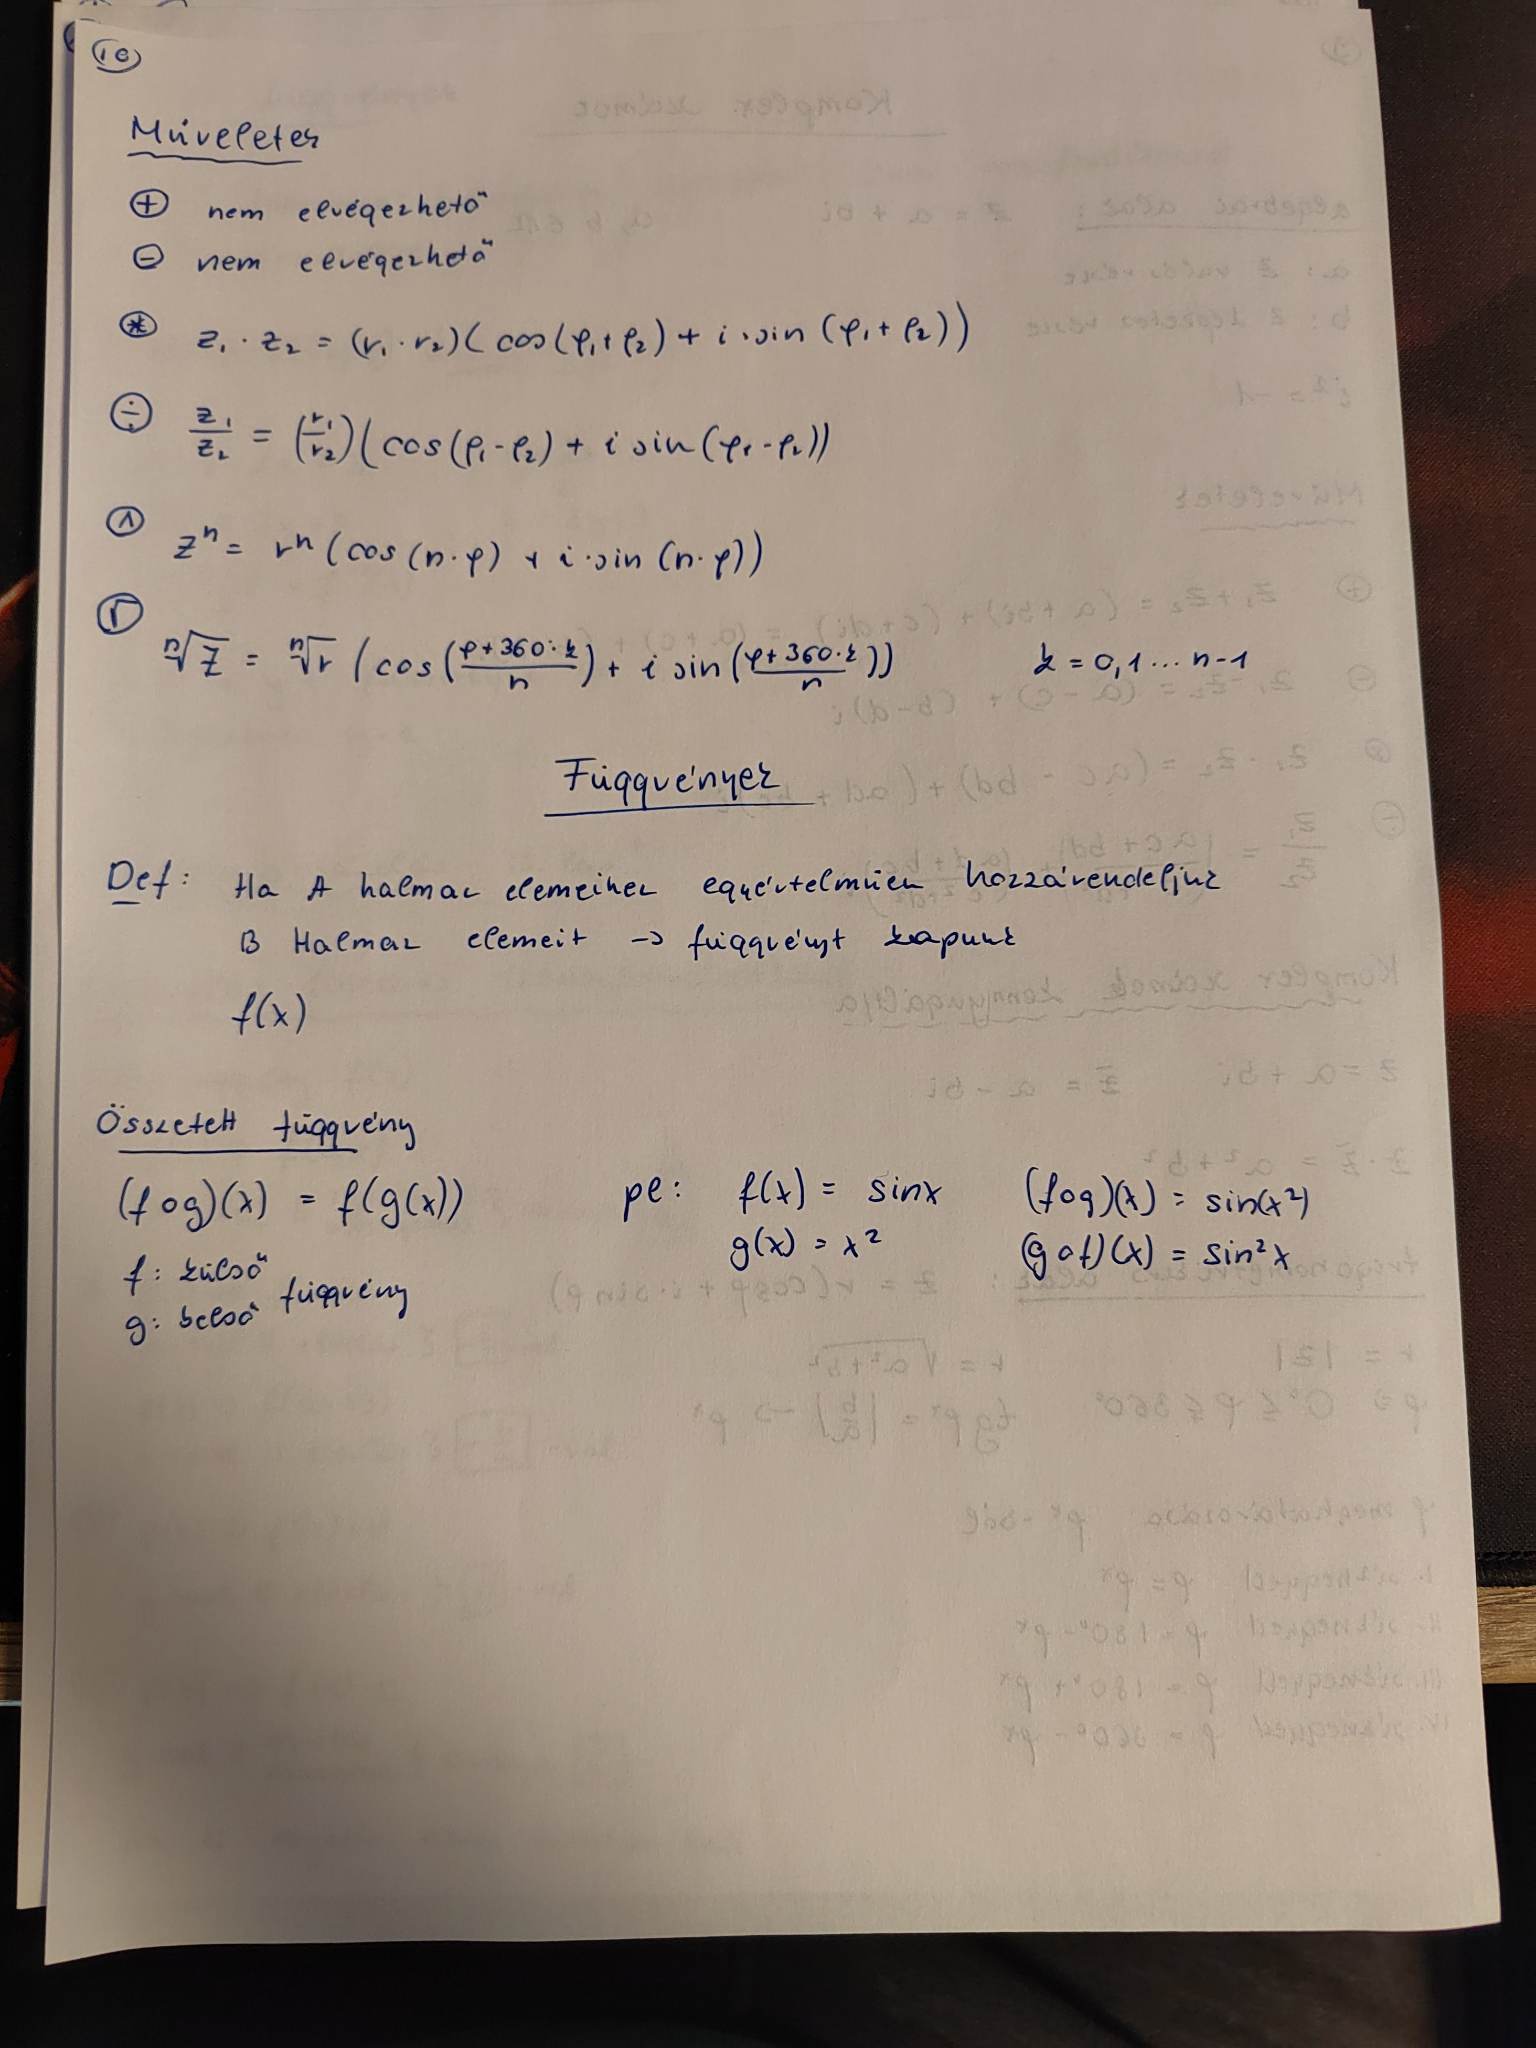 10
Műveletek
⊕ nem elvégezhető
⊖ nem elvégezhető
⊛ z₁ · z₂ = (r₁ · r₂)(cos(φ₁+φ₂) + i·sin(φ₁+φ₂))
÷ z₁/z₂ = (r₁/r₂)(cos(φ₁-φ₂) + i sin(φ₁-φ₂))
^ zⁿ = rⁿ(cos(n·φ) + i·sin(n·φ))
√ ⁿ√z = ⁿ√r (cos((φ+360·k)/n) + i sin((φ+360·k)/n)) k = 0,1...n-1
Függvények
Def: Ha A halmaz elemeihez egyértelműen hozzárendeljük
B Halmaz elemeit → függvényt kapunk
f(x)
Összetett függvény
(f∘g)(x) = f(g(x)) pl: f(x) = sinx (f∘g)(x) = sin(x²)
g(x) = x² (g∘f)(x) = sin²x
f: külső
g: belső függvény